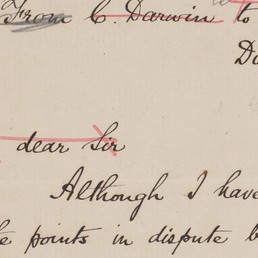 From C. Darwin to
dear Sir
Although I have
points in dispute